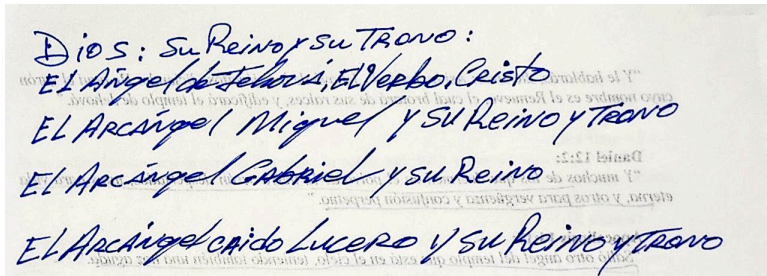 Dios: Su Reino y su Trono:
EL Ángel de Jehová, El Verbo, Cristo
EL Arcángel Miguel y SU Reino y Trono
EL Arcángel Gabriel y su Reino
EL Arcángel caido Lucero y su Reino y Trono